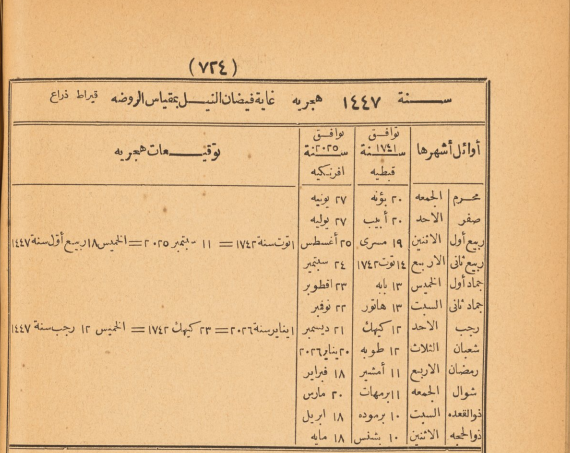 (٧٢٤)
سنة ١٤٤٧ هجريه غاية فيضان النيل بمقياس الروضه قيراط ذراع
أوائل أشهرها توافق سنة ١٧٤١ قبطيه توافق سنة ٢٠٢٥ افرنكيه توقيعات هجريه
محرم الجمعه ٢٠ بؤنه ٢٧ يونيه
صفر الاحد ٢٠ أبيب ٢٧ يوليه
ربيع أول الاثنين ١٩ مسرى ٢٥ أغسطس ١ توت سنة ١٧٤٢ = ١١ سبتمبر ٢٠٢٥ = الخميس ١٨ ربيع أول سنة ١٤٤٧
ربيع ثانى الاربع ١٤ توت ١٧٤٢ ٢٤ سبتمبر
جماد أول الخميس ١٣ بابه ٢٣ اقطوبر
جماد ثانى السبت ١٣ هاتور ٢٢ نوفبر
رجب الاحد ١٢ كيهك ٢١ ديسمبر ١ يناير سنة ٢٠٢٦ = ٢٣ كيهك ١٧٤٢ = الخميس ١٢ رجب سنة ١٤٤٧
شعبان الثلاث ١٢ طوبه ٢٠ يناير ٢٠٢٦
رمضان الاربع ١١ أمشير ١٨ فبراير
شوال الجمعه ١١ برمهات ٢٠ مارس
ذوالقعده السبت ١٠ برموده ١٨ ابريل
ذوالحجه الاثنين ١٠ بشنس ١٨ مايه